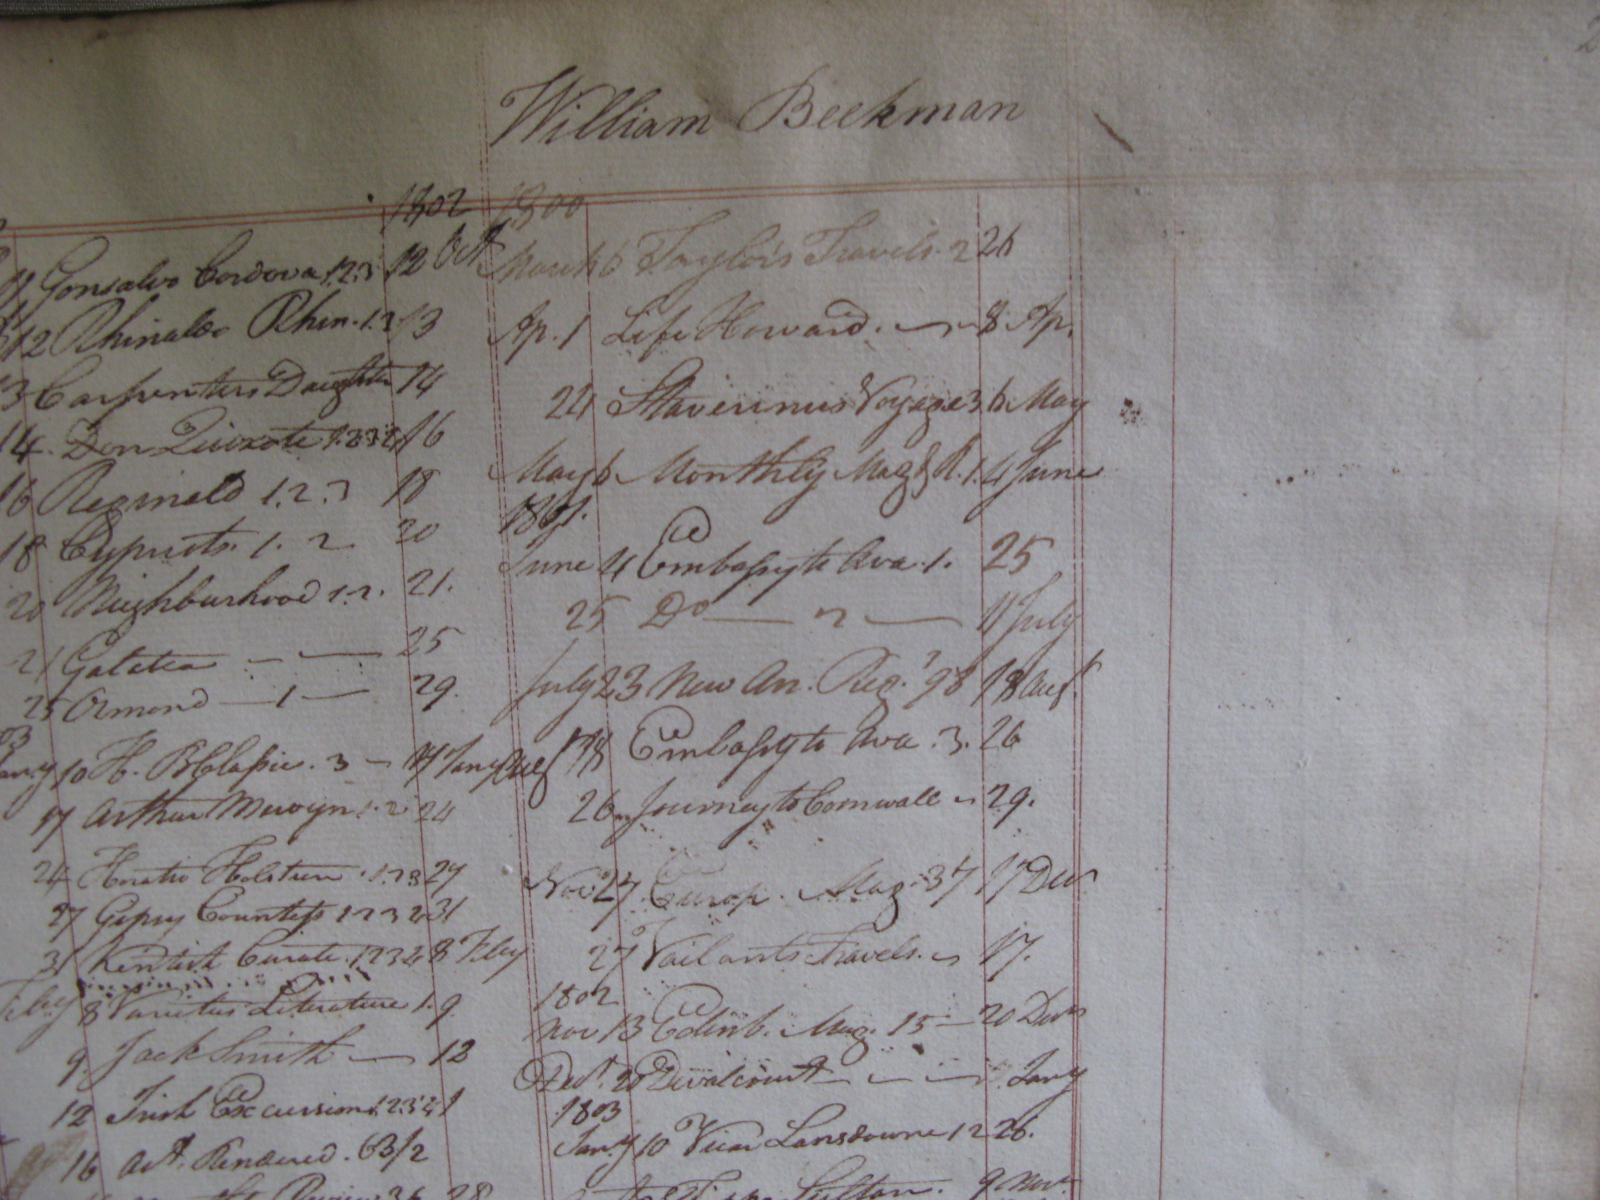 William Beekman
1802
Gonsalvo Cordova 1.2.3 12 Oct
12 Rhinaldo Rhin. 1.2 13
13 Carpenters Daughter 14
14. Don Quixote 1.2.3.4 16
16 Reginald 1.2.3 18
18 Cypriots. 1. 2 20
20 Neighbourhood 1.2. 21.
21 Galatea 25
25 Ormond — 1 — 29.
10 H. B Classics. 3 — 17 Jany
17 Arthur Mervyn 1.2 24
24 Horatio Holstein. 1.2.3 27
27 Gipsy Countess 1 2 3 4 31
31 Kentish Curate. 1 2 3 4 8 Feby
Feby 8 Varieties Literature 1. 9.
9. Jack Smith — 12
12 Irish Excursion 1.2.3.4
16 Rendered. 63/2
Review 36 28
1800
March 6 Taylors Travels. 2 26
Ap. 1 Life Howard. — 8 Ap.
24 Stavorinus Voyage 3 6 May
May 6 Monthly Mag & R. 1. 4 June
1801.
June 4 Embassy to Ava. 1. 25
25 Do — 2 — 11 July
July 23 New An. Reg. '98 18 Augt
Aug 18 Embassy to Ava. 3. 26
26 Journey to Cornwall 29.
Nov 27 Europ. Mag. 37 17 Decr
27 Vailants Travels. 17.
1802
Nov 13 Edinb. Mag. 15 — 20 Decr
Decr. 20 Divalcourt — Jany
1803
Jany 10 Vicar Lansdowne 1 2 26.
9 Nov.